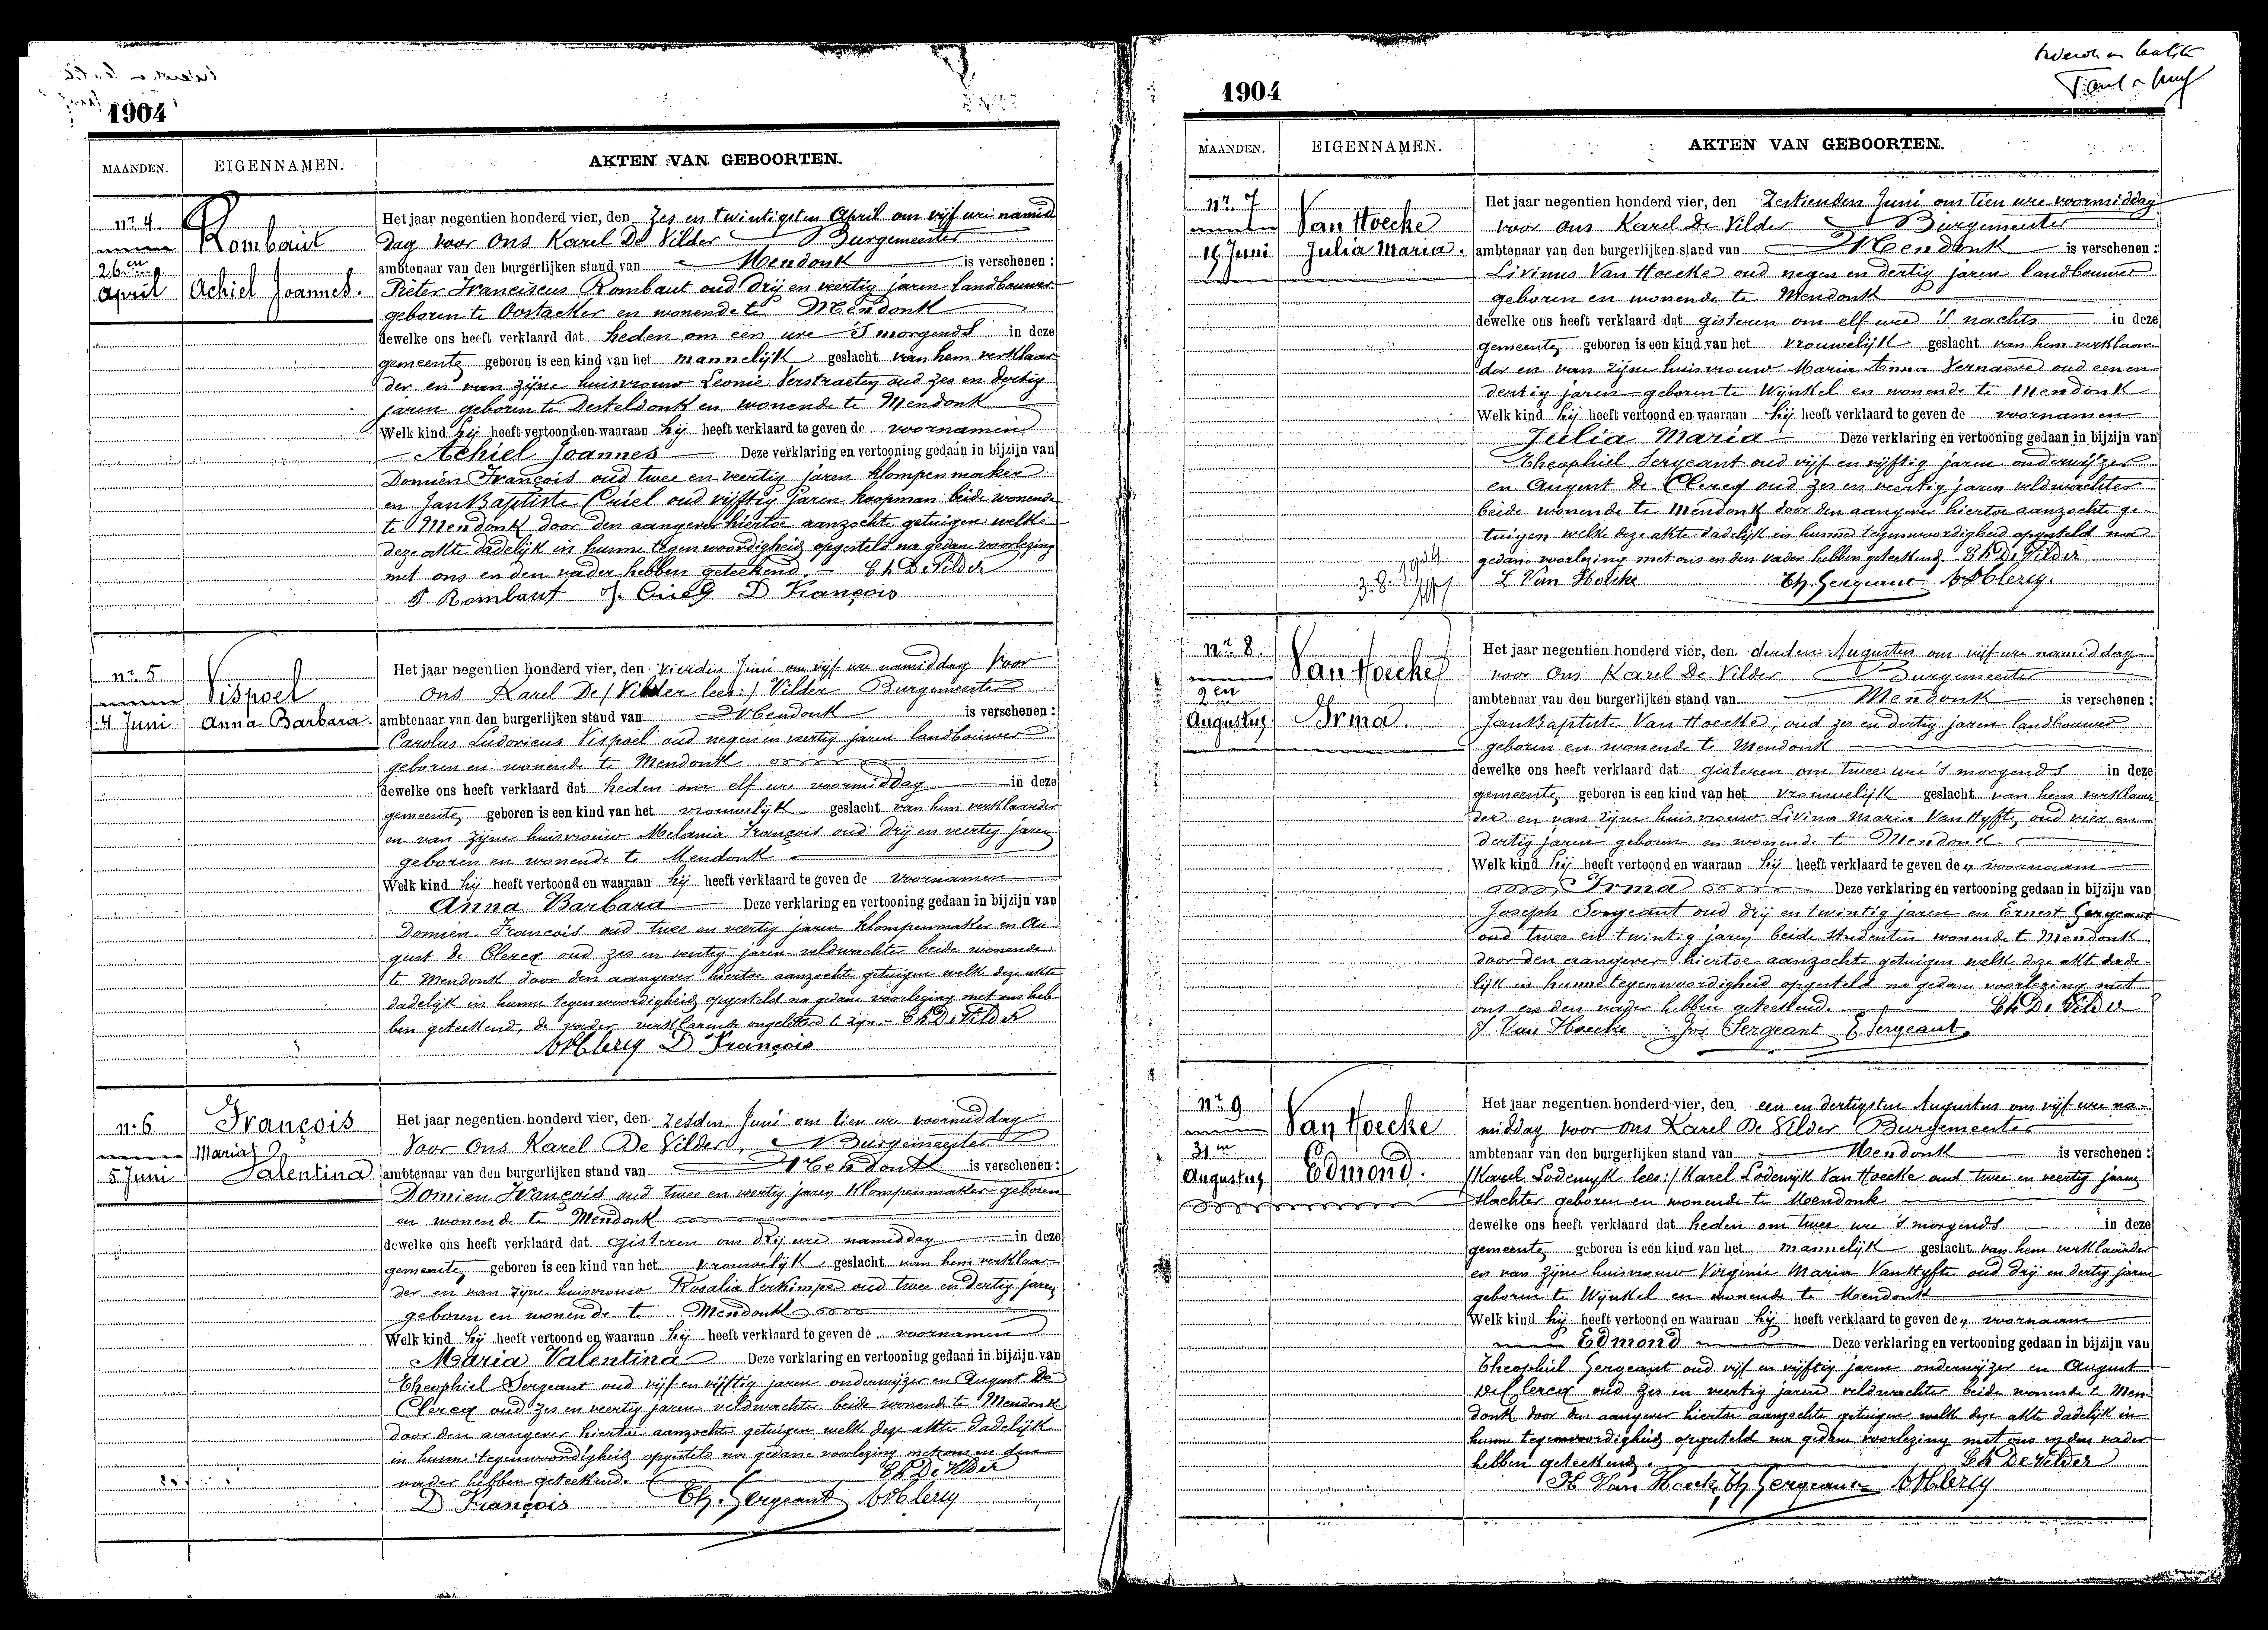 1904
MAANDEN. EIGENNAMEN. AKTEN VAN GEBOORTEN.
nr 4. Rombaut
26en April Achiel Joannes.
Het jaar negentien honderd vier, den zes en twintigsten April om vijf ure namid
dag voor Ons Karel De Vilder Burgemeester
ambtenaar van den burgerlijken stand van Mendonk is verschenen :
Pieter Franciscus Rombaut oud drij en veertig jaren landbouwer
geboren te Oostacker en wonende te Mendonk
dewelke ons heeft verklaard dat heden om een ure 's morgends in deze
gemeente geboren is een kind van het mannelijk geslacht van hem verklaar
der en van zijne huisvrouw Leonie Verstraeten oud zes en dertig
jaren geboren te Desteldonk en wonende te Mendonk
Welk kind hij heeft vertoond en waaraan hij heeft verklaard te geven de voornamen
Achiel Joannes Deze verklaring en vertooning gedaan in bijzijn van
Domien François oud twee en veertig jaren klompenmaker
en Jan Baptiste Criel oud vijftig jaren koopman beide wonende
te Mendonk door den aangever hiertoe aanzochte getuigen welke
deze akte dadelijk in hunne tegenwoordigheid opgesteld na gedane voorlezing
met ons en den vader hebben geteekend. Ch De Vilder
P Rombaut J. Criel D François
nr 5 Vispoel
4 Juni Anna Barbara.
Het jaar negentien honderd vier, den vierden Juni om vijf ure namiddag voor
Ons Karel De /Vilder lees:/ Vilder Burgemeester
ambtenaar van den burgerlijken stand van Mendonk is verschenen :
Carolus Ludovicus Vispoel oud negen en veertig jaren landbouwer
geboren en wonende te Mendonk
dewelke ons heeft verklaard dat heden om elf ure voormiddag in deze
gemeente geboren is een kind van het vrouwelijk geslacht van hem verklaarder
en van zijne huisvrouw Melania François oud drij en veertig jaren
geboren en wonende te Mendonk
Welk kind hij heeft vertoond en waaraan hij heeft verklaard te geven de voornamen
Anna Barbara Deze verklaring en vertooning gedaan in bijzijn van
Domien François oud twee en veertig jaren klompenmaker en Au-
gust de Clercq oud zes en veertig jaren veldwachter beide wonende
te Mendonk door den aangever hiertoe aanzochte getuigen welke deze akte
dadelijk in hunne tegenwoordigheid opgesteld na gedane voorlezing met ons heb-
ben geteekend, de vader verklarende ongeletterd te zijn. - Ch De Vilder
A De Clercq D François
nr 6 François
5 Juni Maria Valentina
Het jaar negentien honderd vier, den zesden Juni om tien ure voormiddag
Voor Ons Karel De Vilder, Burgemeester
ambtenaar van den burgerlijken stand van Mendonk is verschenen :
Domien François oud twee en veertig jaren klompenmaker geboren
en wonende te Mendonk
dewelke ons heeft verklaard dat gisteren om drij ure namiddag in deze
gemeente geboren is een kind van het vrouwelijk geslacht van hem verklaar
der en van zijne huisvrouw Rosalia Verkimpe oud twee en dertig jaren
geboren en wonende te Mendonk
Welk kind hij heeft vertoond en waaraan hij heeft verklaard te geven de voornamen
Maria Valentina Deze verklaring en vertooning gedaan in bijzijn van
Theophiel Sergeant oud vijf en vijftig jaren onderwijzer en August De
Clercq oud zes en veertig jaren veldwachter beide wonende te Mendonk
door den aangever hiertoe aanzochte getuigen welke deze akte dadelijk
in hunne tegenwoordigheid opgesteld na gedane voorlezing met ons en den
vader hebben geteekend. Ch De Vilder
D François Th. Sergeant A De Clercq
1904
MAANDEN. EIGENNAMEN. AKTEN VAN GEBOORTEN.
nr. 7 Van Hoecke
15 Juni Julia Maria.
Het jaar negentien honderd vier, den zestienden Juni om tien ure voormiddag
voor Ons Karel De Vilder Burgemeester
ambtenaar van den burgerlijken stand van Mendonk is verschenen :
Livinus Van Hoecke oud negen en dertig jaren landbouwer
geboren en wonende te Mendonk
dewelke ons heeft verklaard dat gisteren om elf ure 's nachts in deze
gemeente geboren is een kind van het vrouwelijk geslacht van hem verklaar
der en van zijne huisvrouw Maria Anna Vernaeve oud een en
dertig jaren geboren te Wijnkel en wonende te Mendonk
Welk kind hij heeft vertoond en waaraan hij heeft verklaard te geven de voornamen
Julia Maria Deze verklaring en vertooning gedaan in bijzijn van
Theophiel Sergeant oud vijf en vijftig jaren onderwijzer
en August De Clercq oud zes en veertig jaren veldwachter
beide wonende te Mendonk door den aangever hiertoe aanzochte ge-
tuigen welke deze akte dadelijk in hunne tegenwoordigheid opgesteld na
gedane voorlezing met ons en den vader hebben geteekend. Ch De Vilder
L Van Hoecke Th. Sergeant A De Clercq.
nr. 8. Van Hoecke
2en Augustus Irma.
Het jaar negentien honderd vier, den derden Augustus om vijf ure namiddag
voor Ons Karel De Vilder Burgemeester
ambtenaar van den burgerlijken stand van Mendonk is verschenen :
Jan Baptist Van Hoecke, oud zes en dertig jaren landbouwer
geboren en wonende te Mendonk
dewelke ons heeft verklaard dat gisteren om twee ure 's morgends in deze
gemeente geboren is een kind van het vrouwelijk geslacht van hem verklaar
der en van zijne huisvrouw Livina Maria Van Hyfte, oud vier en
dertig jaren geboren en wonende te Mendonk
Welk kind hij heeft vertoond en waaraan hij heeft verklaard te geven de voornaam
Irma Deze verklaring en vertooning gedaan in bijzijn van
Joseph Sergeant oud drij en twintig jaren en Ernest Sergeant
oud twee en twintig jaren beide studenten wonende te Mendonk
door den aangever hiertoe aanzochte getuigen welke deze akte dade-
lijk in hunne tegenwoordigheid opgesteld na gedane voorlezing met
ons en den vader hebben geteekend. Ch De Vilder
J Van Hoecke Jos Sergeant E Sergeant.
nr 9 Van Hoecke
31en Augustus Edmond.
Het jaar negentien honderd vier, den een en dertigsten Augustus om vijf ure na-
middag voor Ons Karel De Vilder Burgemeester
ambtenaar van den burgerlijken stand van Mendonk is verschenen :
/Karel Lodewyk lees:/ Karel Lodewijk Van Hoecke oud twee en veertig jaren
slachter geboren en wonende te Mendonk
dewelke ons heeft verklaard dat heden om twee ure 's morgends in deze
gemeente geboren is een kind van het mannelijk geslacht van hem verklaarder
en van zijne huisvrouw Virginie Maria Van Hyfte oud drij en dertig jaren
geboren te Wijnkel en wonende te Mendonk
Welk kind hij heeft vertoond en waaraan hij heeft verklaard te geven de voornaam
Edmond Deze verklaring en vertooning gedaan in bijzijn van
Theophiel Sergeant oud vijf en vijftig jaren onderwijzer en August
De Clercq oud zes en veertig jaren veldwachter beide wonende te Men-
donk door den aangever hiertoe aanzochte getuigen welke deze akte dadelijk in
hunne tegenwoordigheid opgesteld na gedane voorlezing met ons en den vader
hebben geteekend. Ch De Vilder
K Van Hoecke Th Sergeant A De Clercq